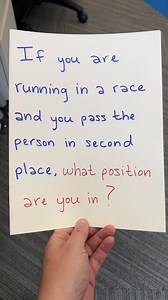 If you are
running in a race
and you pass the
person in second
place, what position
are you in?